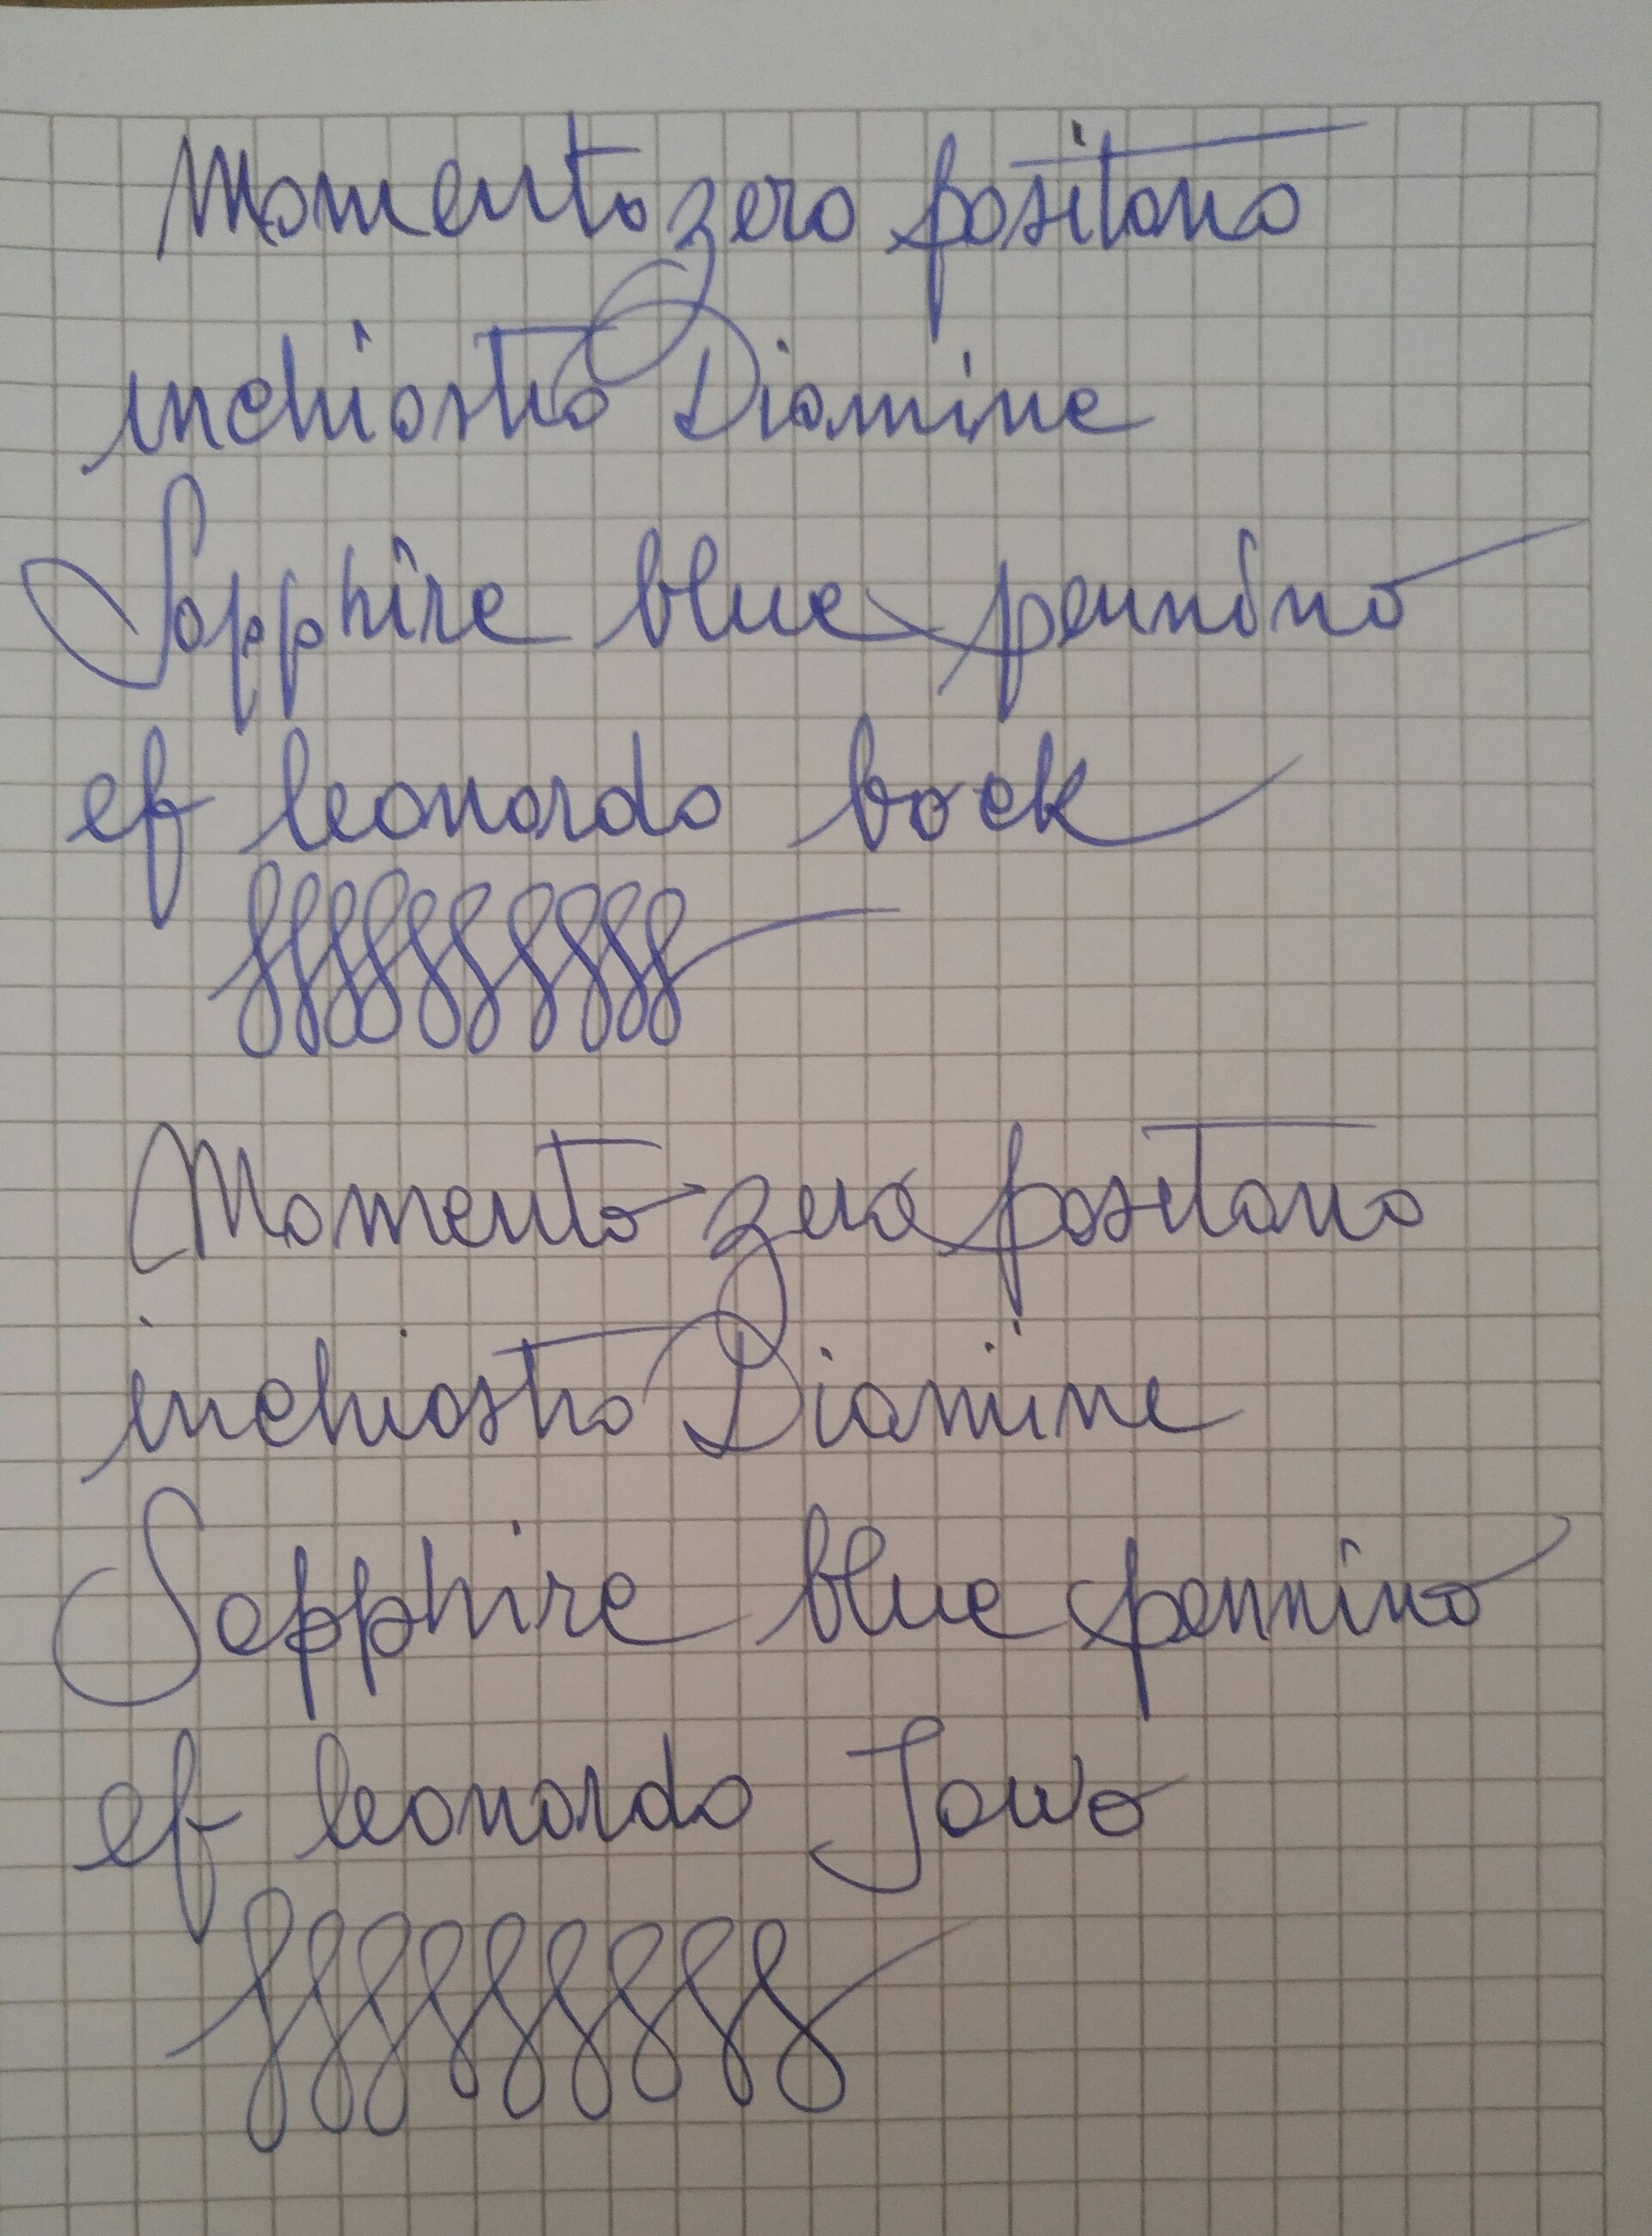 Momento zero positano
inchiostro Diamine
Sapphire blue pennino
ef leonardo bock
Momento zero positano
inchiostro Diamine
Sapphire blue pennino
ef leonardo Jowo